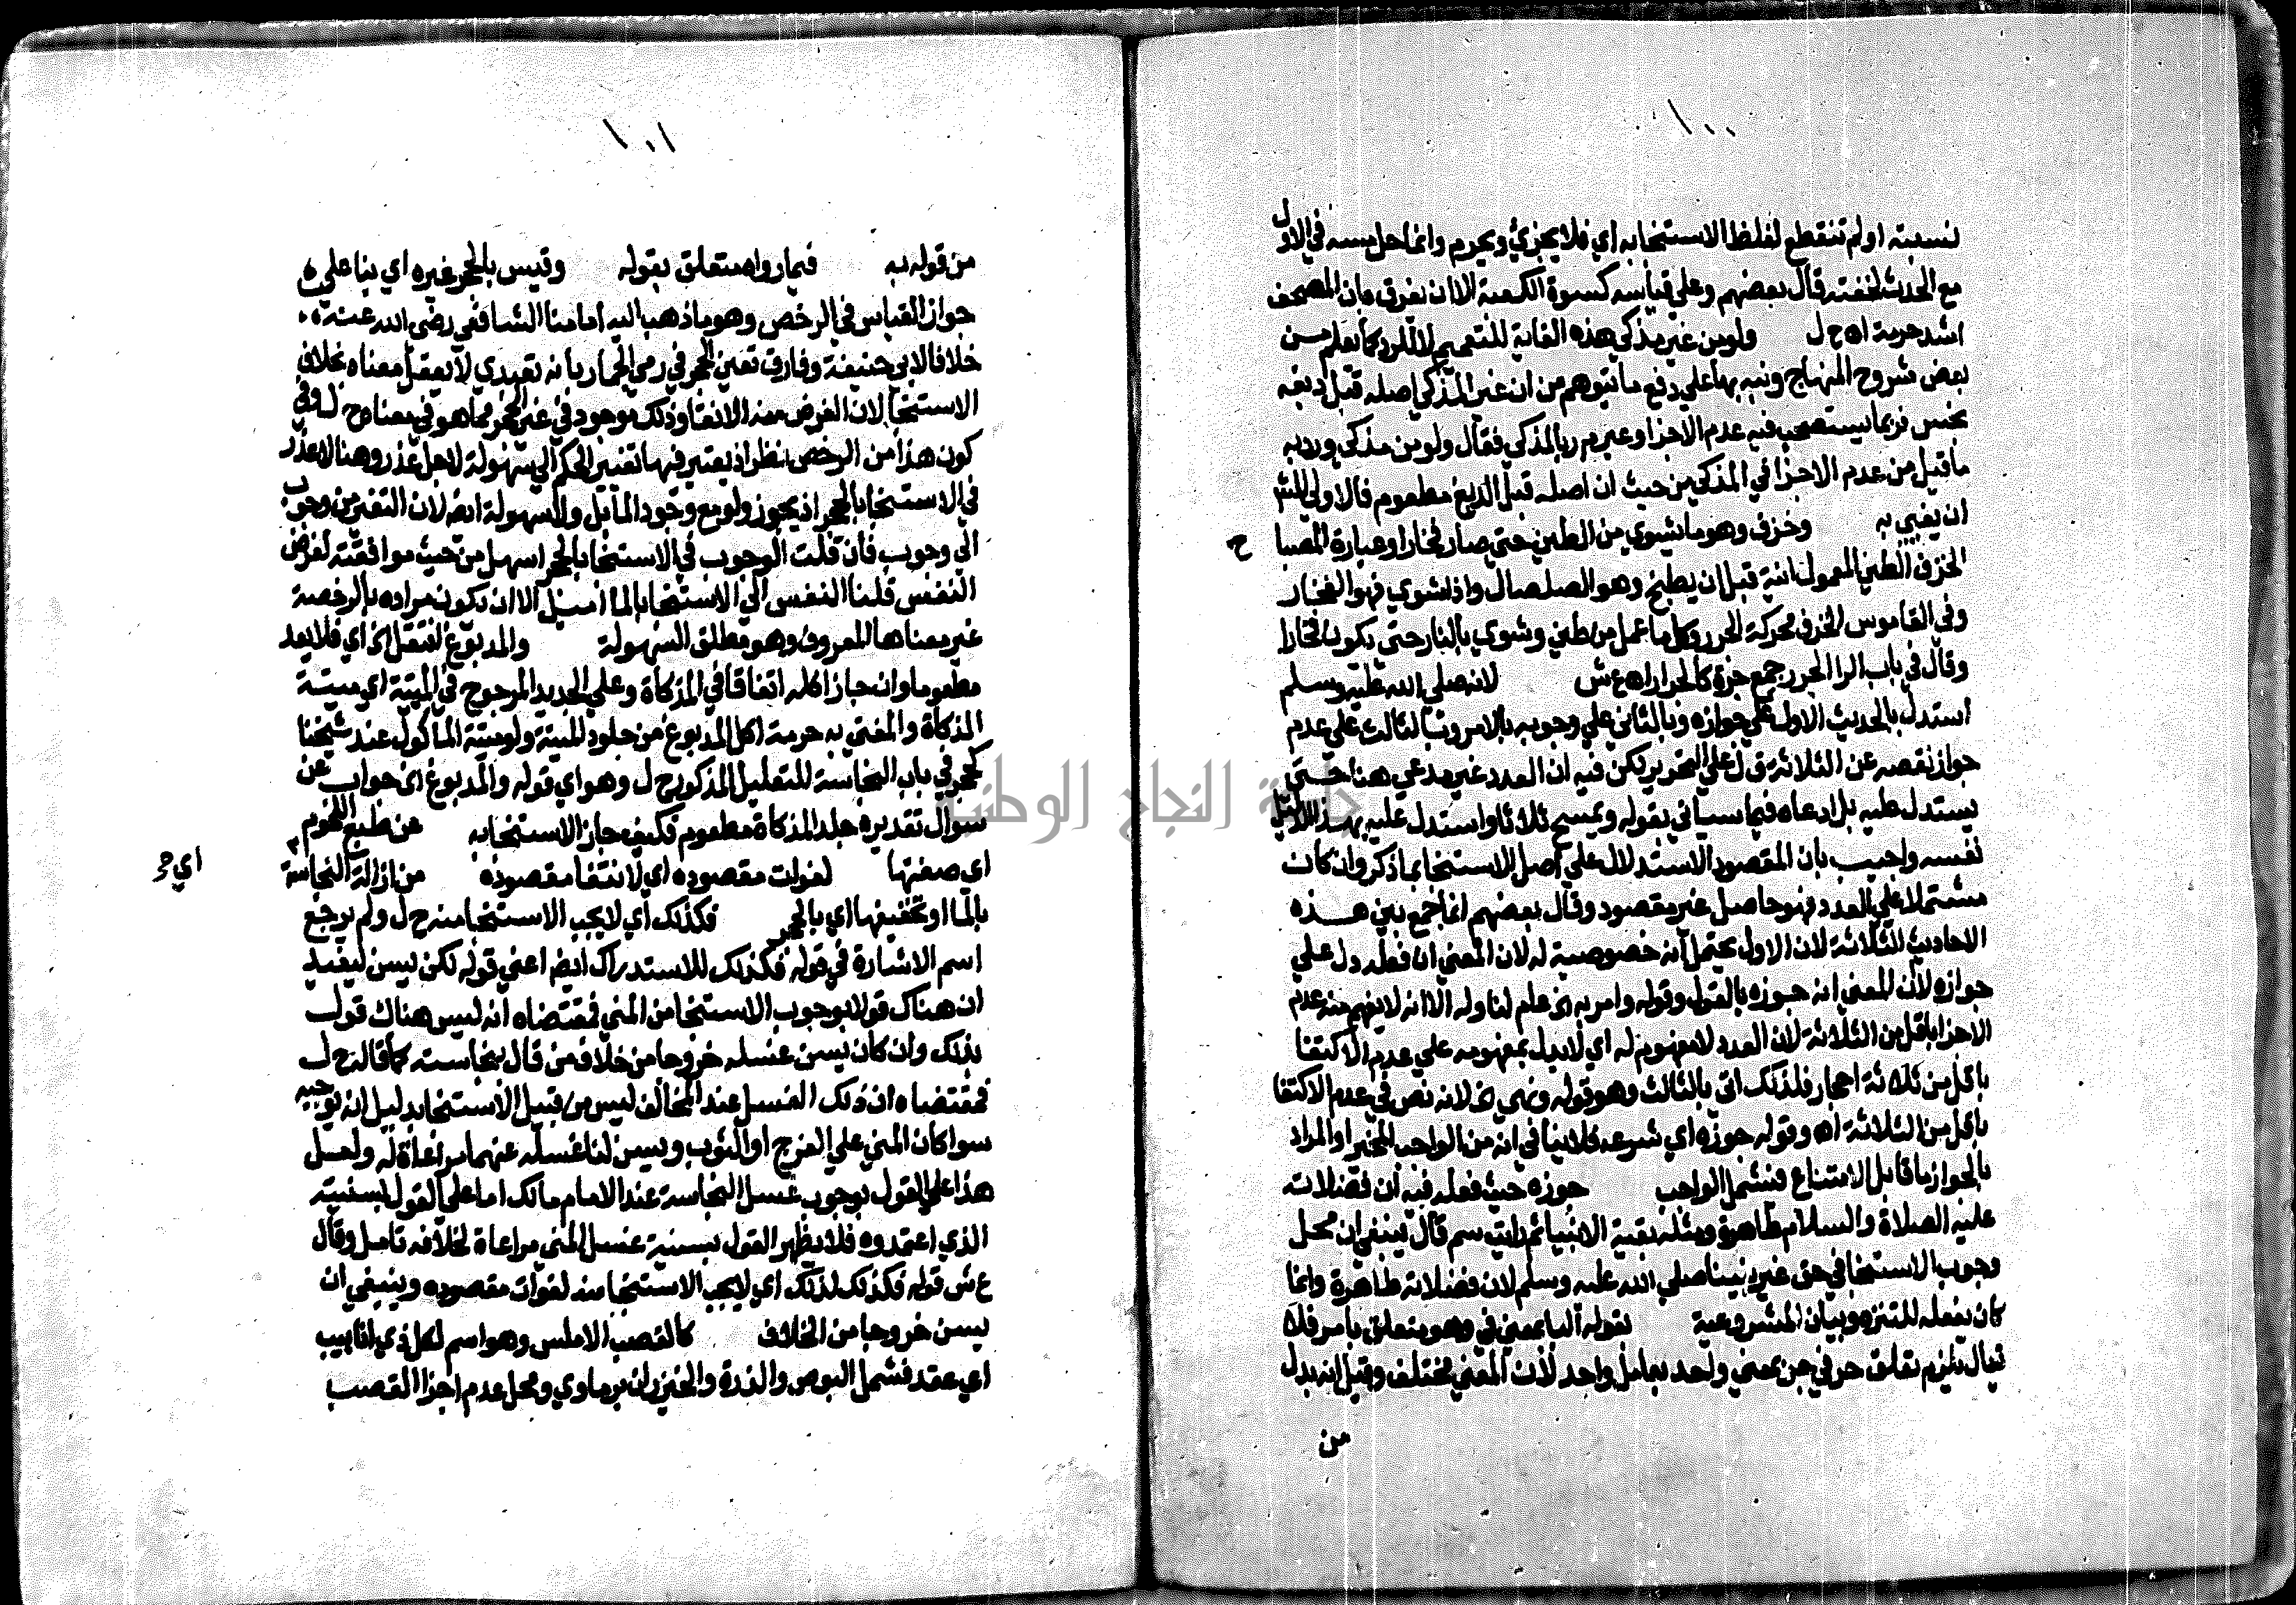 ١٠٠
نسبته او لم تنقطع لغلظ الاستنجا به اي فلا يجزئ ويحرم وانما حل مسه في الاول
مع الحدث لخفته قال بعضهم وعلي قياسه كسوة الكعبة الا ان يفرق بان المصحف
اشد حرمة اه ح ل ولو من غير مذكي هذه الغاية للتعميم لا للرد كما يعلم من
بعض شروح المنهاج ونبه بها علي دفع ما يتوهم من ان غير المذكي اصله قبل دبغه
نجس فربما يستصحب فيه عدم الاجزا وعبر م ر بالمذكي فقال ولو من مذكي ورد به
ما قيل من عدم الاجزا في المذكي من حيث ان اصله قبل الدبغ مطعوم فالاولي للش
ان يغيي به وخزف وهو ما يشوي من الطين حتي صار فخارا وعبارة المصبا
ح
الخزف الطين المعمول انية قبل ان يطبخ وهو الصلصال واذا شوي فهو الفخار
وفي القاموس الخزف محركة الجرر وكل ما عمل من طين وشوي بالنار حتي يكون فخارا
وقال في باب الرا الجرر جمع جرة كالجرار اه ع ش لانه صلي الله عليه وسلم
استدل بالحديث الاول علي جوازه وبالثاني علي وجوبه بالامر وبالثالث علي عدم
جواز نقصه عن الثلاثة ق ل علي التحرير لكن فيه ان العدد غير مدعي هنا حتي
يستدل عليه بل ادعاه فيما سياتي بقوله ويمسح ثلاثا واستدل عليه بهذا الدليل
نفسه واجيب بان المقصود الاستدلال علي اصل الاستنجا بما ذكر وان كان
مشتملا علي العدد فهو حاصل غير مقصود وقال بعضهم انما جمع بين هذه
الاحاديث الثلاثة لان الاول يحتمل انه خصوصية له لان المعني ان فعله دل علي
جوازه لان المعني انه جوزه بالقول وقوله وامر به الخ عام لنا وله الا انه لا يفهم منه عدم
الاجزا باقل من الثلاثة لان العدد لا مفهوم له اي لا يدل بمفهومه علي عدم الاكتفا
باقل من ثلاثة احجار فلذلك اتي بالثالث وهو قوله ونهي الخ لانه نص في عدم الاكتفا
باقل من الثلاثة اه وقوله جوزه اي شرعه فلا ينافي انه من الواجب المخير او المراد
بالجواز ما قابل الامتناع فيشمل الواجب جوزه حيث فعله فيه ان فضلات
عليه الصلاة والسلام طاهرة ومثله بقية الانبيا ثم رايت سم قال ينبغي ان محل
وجوب الاستنجا في حق غير نبينا صلي الله عليه وسلم لان فضلاته طاهرة وانما
كان يفعله للتنزه وبيان المشروعية بقوله البا بمعني في وهو متعلق بامر فلا
يقال يلزم تعلق حرفي جر بمعني واحد بعامل واحد لان المعني مختلف وقيل انه بدل
من
١٠١
من قوله به فيما رواه متعلق بقوله وقيس بالحجر غيره اي بنا علي
جواز القياس في الرخص وهو ما ذهب اليه امامنا الشافعي رضي الله عنه
خلافا لابي حنيفة وفارق تعين الحجر في رمي الجمار بانه تعبدي لا يعقل معناه بخلاف
الاستنجا لان الغرض منه الانقا وذلك موجود في غير الحجر مما هو في معناه ح ل وفي
كون هذا من الرخص نظر اذ يعتبر فيها تغير الحكم الي سهولة لاجل عذر وهنا لا عذر
في الاستنجا بالحجر اذ يجوز ولو مع وجود الما بل والسهولة ايضا لان التغير من وجوب
الي وجوب فان قلت الوجوب في الاستنجا بالحجر اسهل من حيث موافقته لغرض
النفس قلنا النفس الي الاستنجا بالما اميل الا ان يكون مراده بالرخصة
غير معناها المعروف وهو مطلق السهولة والمدبوغ انتقل الخ اي فلا يعد
مطعوما وان جاز اكله اتفاقا في المذكاة وعلي الجديد المرجوح في الميتة اي ميتة
المذكاة والمفتي به حرمة اكل المدبوغ من جلود الميتة ولو ميتة الماكول عند شيخنا
كحجر في باب النجاسة للتعليل المذكور ح ل وهو اي قوله والمدبوغ الخ جواب عن
سوال تقديره جلد المذكاة مطعوم فكيف جاز الاستنجا به عن طبع اللحوم
اي صفتها لفوات مقصوده اي لانتفا مقصوده من ازالة النجاسة
اي م ر
بالما او تخفيفها اي بالحجر فكذلك اي لا يجب الاستنجا منه ح ل ولم يرجع
اسم الاشارة في قوله فكذلك للاستدراك ايضا اعني قوله لكن يسن ليفيد
ان هناك قولا بوجوب الاستنجا من المني فمقتضاه انه ليس هناك قول
بذلك وان كان يسن غسله خروجا من خلاف من قال بنجاسته كما قاله ح ل
فمقتضاه ان ذلك الغسل عند المخالف ليس من قبيل الاستنجا بدليل انه يوجبه
سوا كان المني علي الفرج او الثوب ويسن لنا غسله عنهما مراعاة له ولعل
هذا علي القول بوجوب غسل النجاسة عند الامام مالك اما علي القول بسنيته
الذي اعتمدوه فلا يظهر القول بسنية غسل المني مراعاة لخلافه تامل وقال
ع ش قوله فكذلك لذلك اي لا يجب الاستنجا منه لفوات مقصوده وينبغي ان
يسن خروجا من الخلاف كالقصب الاملس وهو اسم لكل ذي انابيب
اي عقد فشمل البوص والذرة والخيزران برماوي ومحل عدم اجزا القصب
جامعة النجاح الوطنية